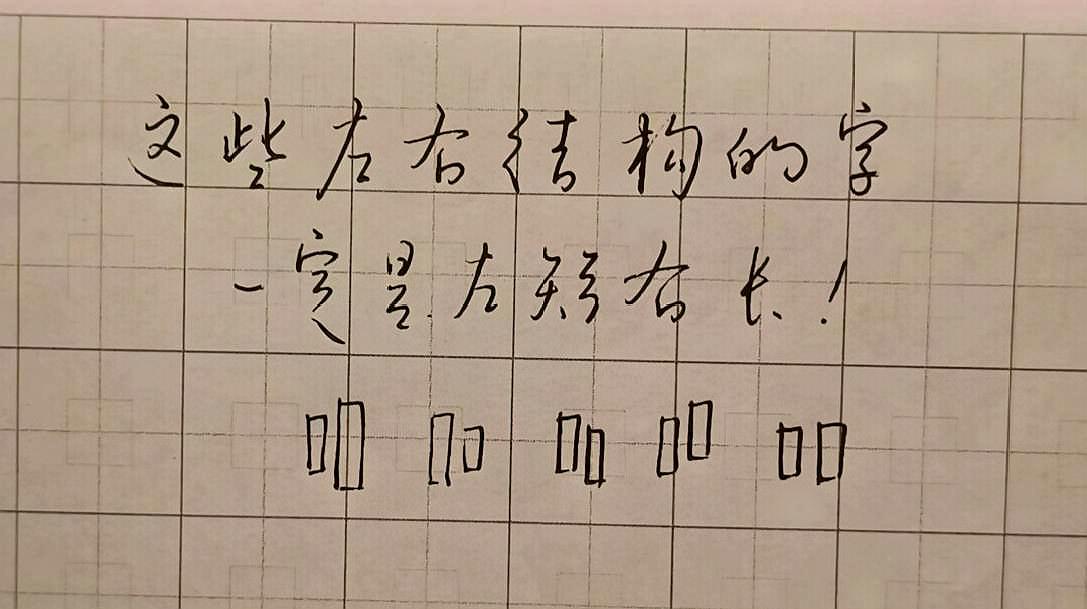 这些左右结构的字
一定是左短右长！